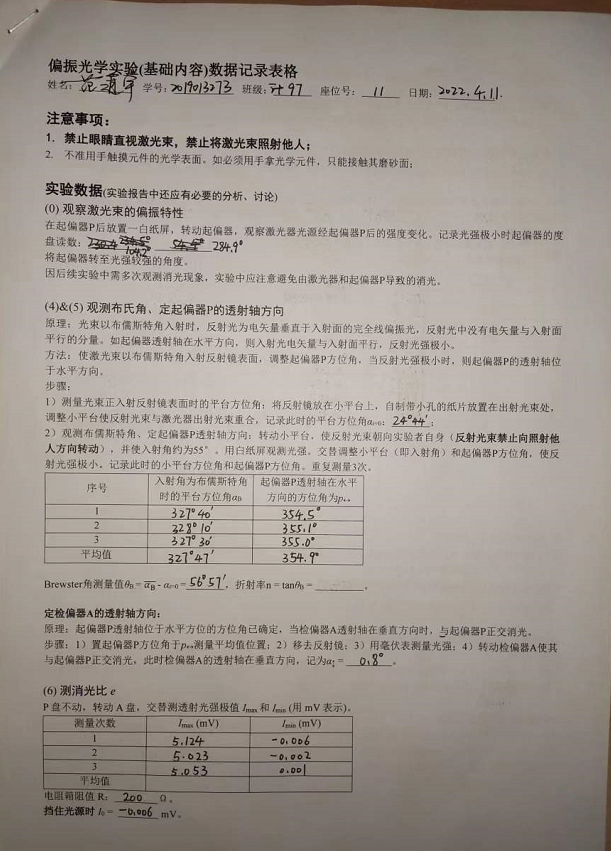 偏振光学实验(基础内容)数据记录表格
姓名: 学号: 2019013273 班级: 计97 座位号: 11 日期: 2022.4.11.
注意事项:
1. 禁止眼睛直视激光束,禁止将激光束照射他人;
2. 不准用手触摸元件的光学表面。如必须用手拿光学元件,只能接触其磨砂面;
实验数据(实验报告中还应有必要的分析、讨论)
(0) 观察激光束的偏振特性
在起偏器P后放置一白纸屏,转动起偏器,观察激光器光源经起偏器P后的强度变化。记录光强极小时起偏器的度
盘读数: 104.2° 284.9°
将起偏器转至光强较强的角度。
因后续实验中需多次观测消光现象,实验中应注意避免由激光器和起偏器P导致的消光。
(4)&(5) 观测布氏角、定起偏器P的透射轴方向
原理:光束以布儒斯特角入射时,反射光为电矢量垂直于入射面的完全线偏振光,反射光中没有电矢量与入射面
平行的分量。如起偏器透射轴在水平方向,则入射光电矢量与入射面平行,反射光强极小。
方法:使激光束以布儒斯特角入射反射镜表面,调整起偏器P方位角,当反射光强极小时,则起偏器P的透射轴位
于水平方向。
步骤:
1)测量光束正入射反射镜表面时的平台方位角:将反射镜放在小平台上,自制带小孔的纸片放置在出射光束处,
调整小平台使反射光束与激光器出射光束重合,记录此时的平台方位角αᵢ₌₀: 24°44′;
2)观测布儒斯特角、定起偏器P透射轴方向:转动小平台,使反射光束朝向实验者自身(反射光束禁止向照射他
人方向转动),并使入射角约为55°。用白纸屏观测光强。交替调整小平台(即入射角)和起偏器P方位角,使反
射光强极小,记录此时的小平台方位角和起偏器P方位角。重复测量3次。
序号 入射角为布儒斯特角时的平台方位角αB 起偏器P透射轴在水平方向的方位角为p↔
1 327°40′ 354.5°
2 328°10′ 355.1°
3 327°30′ 355.0°
平均值 327°47′ 354.9°
Brewster角测量值θB = αB - αᵢ₌₀ = 56°57′,折射率n = tanθB = 。
定检偏器A的透射轴方向:
原理:起偏器P透射轴位于水平方位的方位角已确定,当检偏器A透射轴在垂直方向时,与起偏器P正交消光。
步骤:1)置起偏器P方位角于p↔测量平均值位置;2)移去反射镜;3)用毫伏表测量光强;4)转动检偏器A使其
与起偏器P正交消光,此时检偏器A的透射轴在垂直方向,记为a↕ = 0.8° 。
(6) 测消光比 e
P 盘不动,转动 A 盘,交替测透射光强极值 Imax 和 Imin (用 mV 表示)。
测量次数 Imax (mV) Imin (mV)
1 5.124 -0.006
2 5.023 -0.002
3 5.053 0.001
平均值
电阻箱阻值 R: 200 Ω。
挡住光源时 I₀ = -0.006 mV。